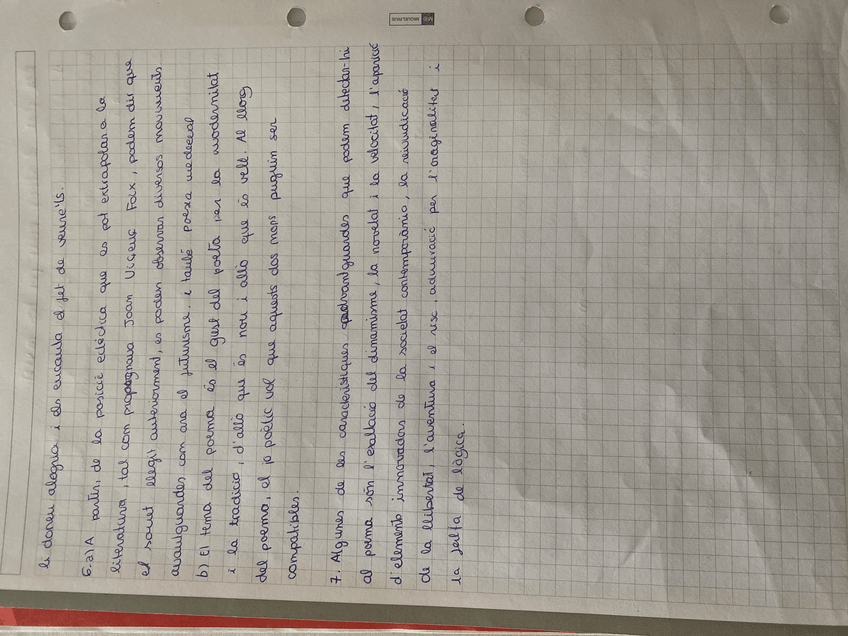 li donen alegria i els encanta el fet de veure'ls.
6.a) A partir, de la posició eclèctica que es pot extrapolar a la
literatura, tal com propugnava Joan Vicenç Foix, podem dir que
el sonet llegit anteriorment, es poden observar diversos moviments
avantguardes com ara el futurisme. i també poexa medieval
b) El tema del poema és el gust del poeta per la modernitat
i la tradició, d'allò que és nou i allò que és vell. Al llarg
del poema, el jo poètic vol que aquests dos mons puguin ser
compatibles.
7. Algunes de les característiques avantguardes que podem detectar-hi
al poema són l'exaltació del dinamisme, la novetat i la velocitat, l'aparició
d'elements innovadors de la societat contemporània, la reivindicació
de la llibertat, l'aventura i el risc, admiració per l'originalitat i
la falta de lògica.
MIQUELRIUS